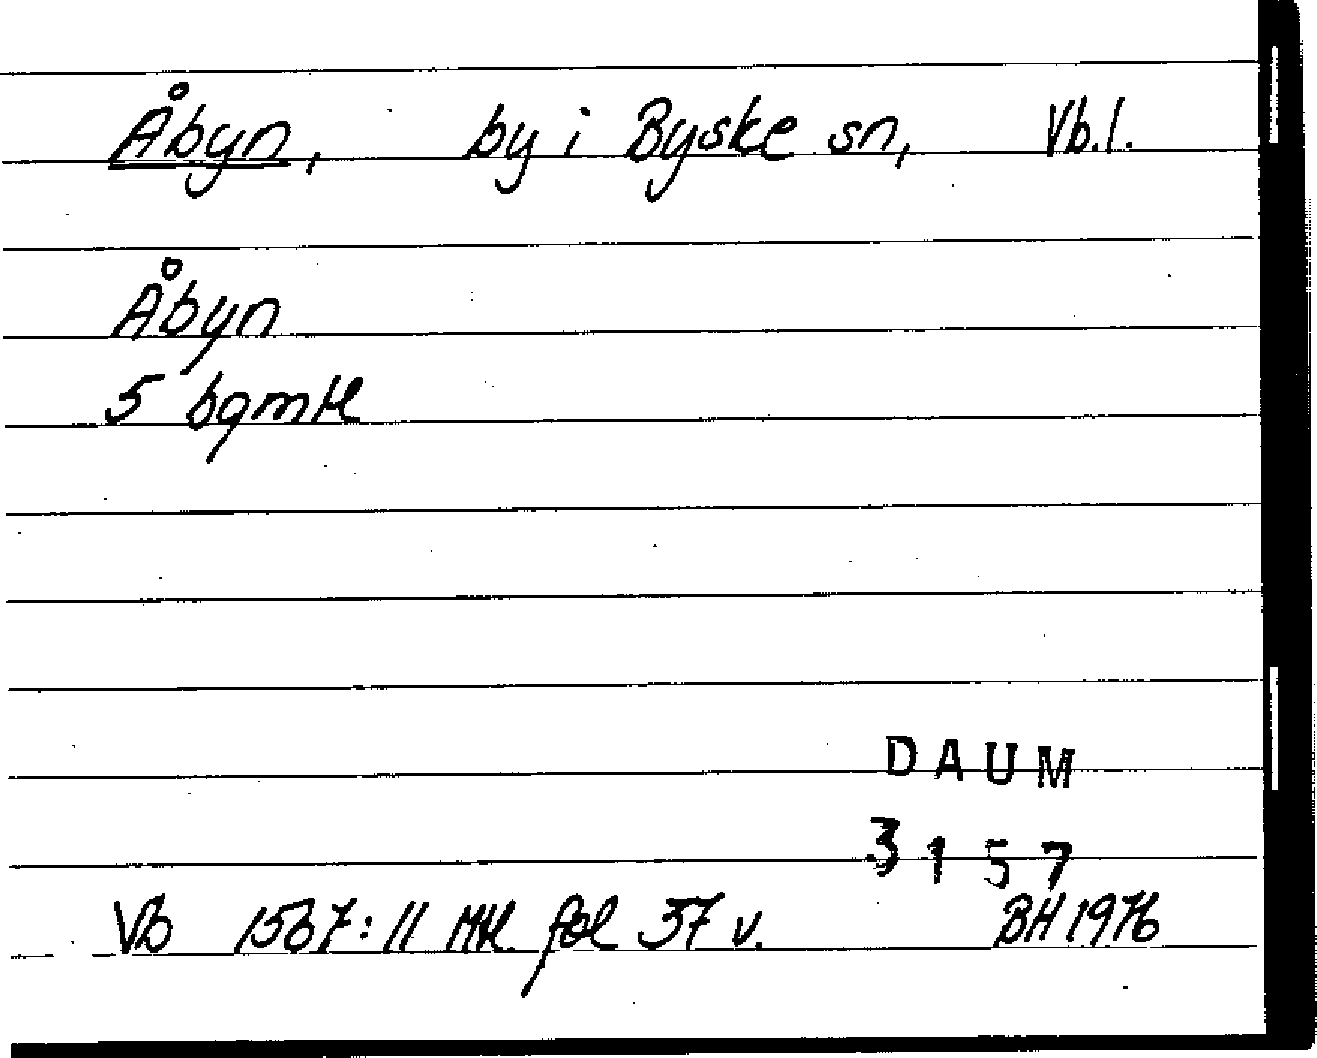 Åbyn, by i Byske sn, Vb.l.
Åbyn
5 bgmtl
DAUM
3157
Vb 1567:11 Mtl fol 37 v. BH 1976